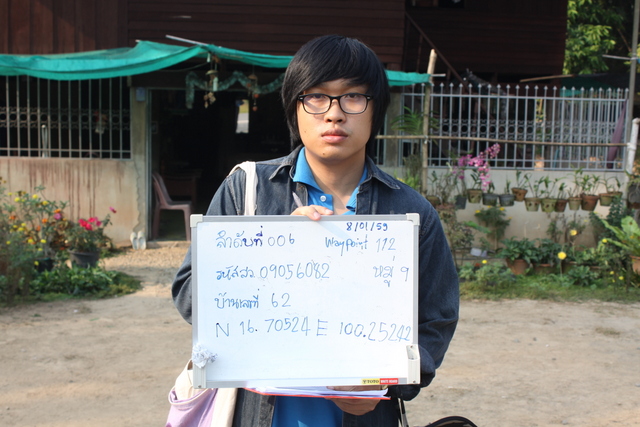 8/01/59
ลำดับที่ 006 waypoint 112
รหัสสว 09056082 หมู่ 9
บ้านเลขที่ 62
N 16. 70524 E 100.25242